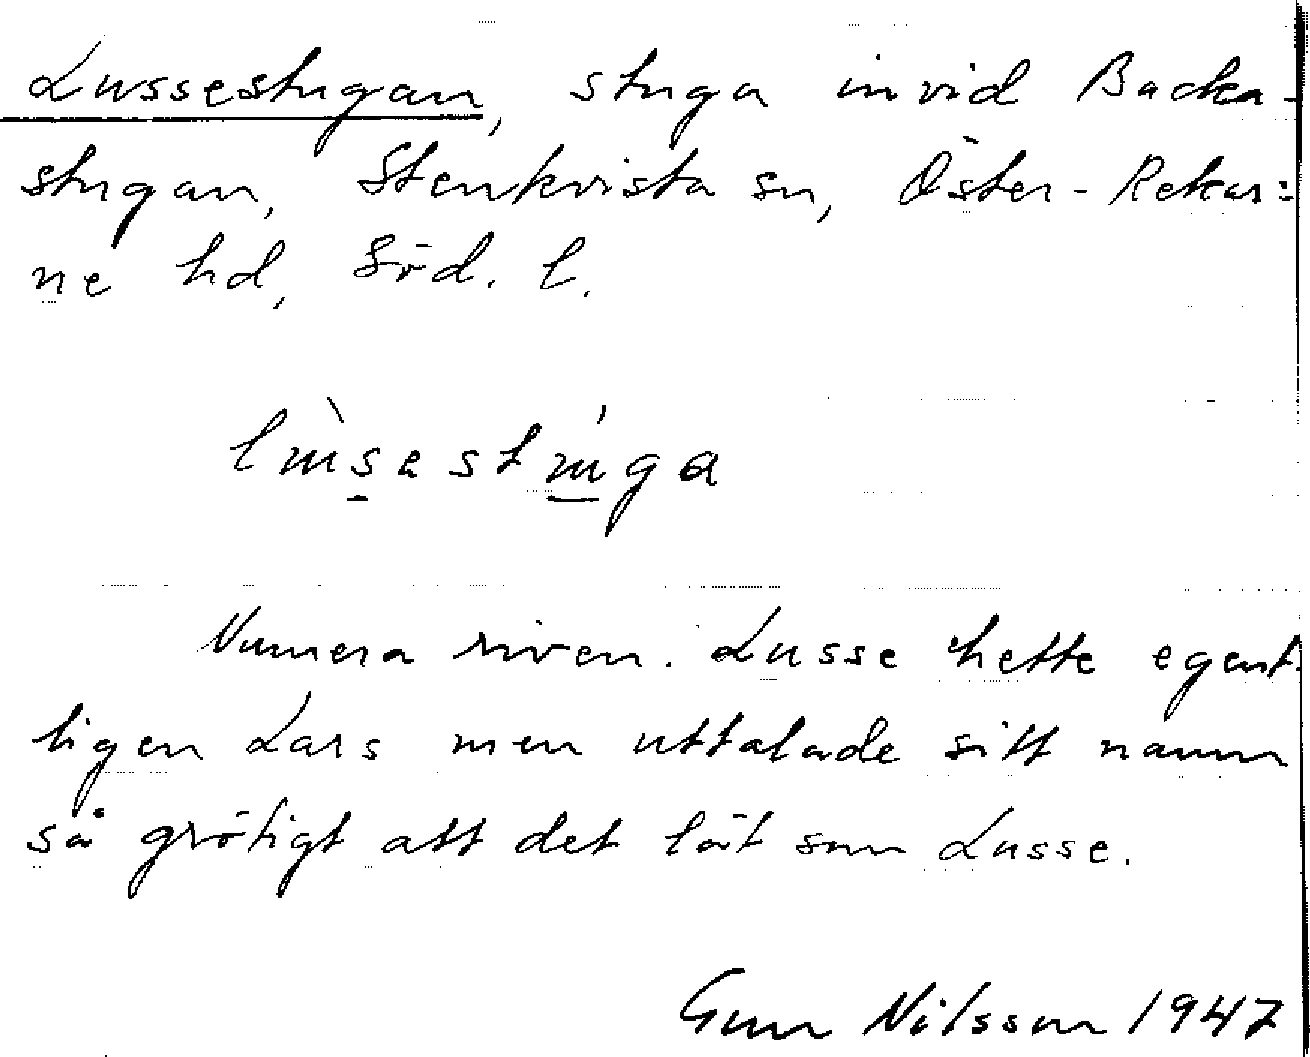 Lussestugan, stuga invid Backa-
stugan, Stenkvista sn, Öster-Rekar=
ne hd, Söd. l.
Numera riven. Lusse hette egent-
ligen Lars men uttalade sitt namn
så grötigt att det lät som Lusse.
Gun Nilsson 1947